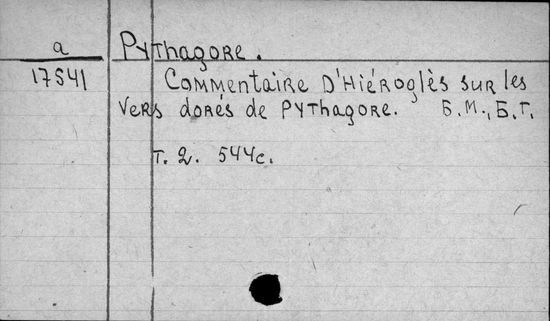 a
17541
Pythagore.
Commentaire D'Hiéroglès sur les
vers dorés de Pythagore. Б.М., Б.Г.
Т. 2. 544с.